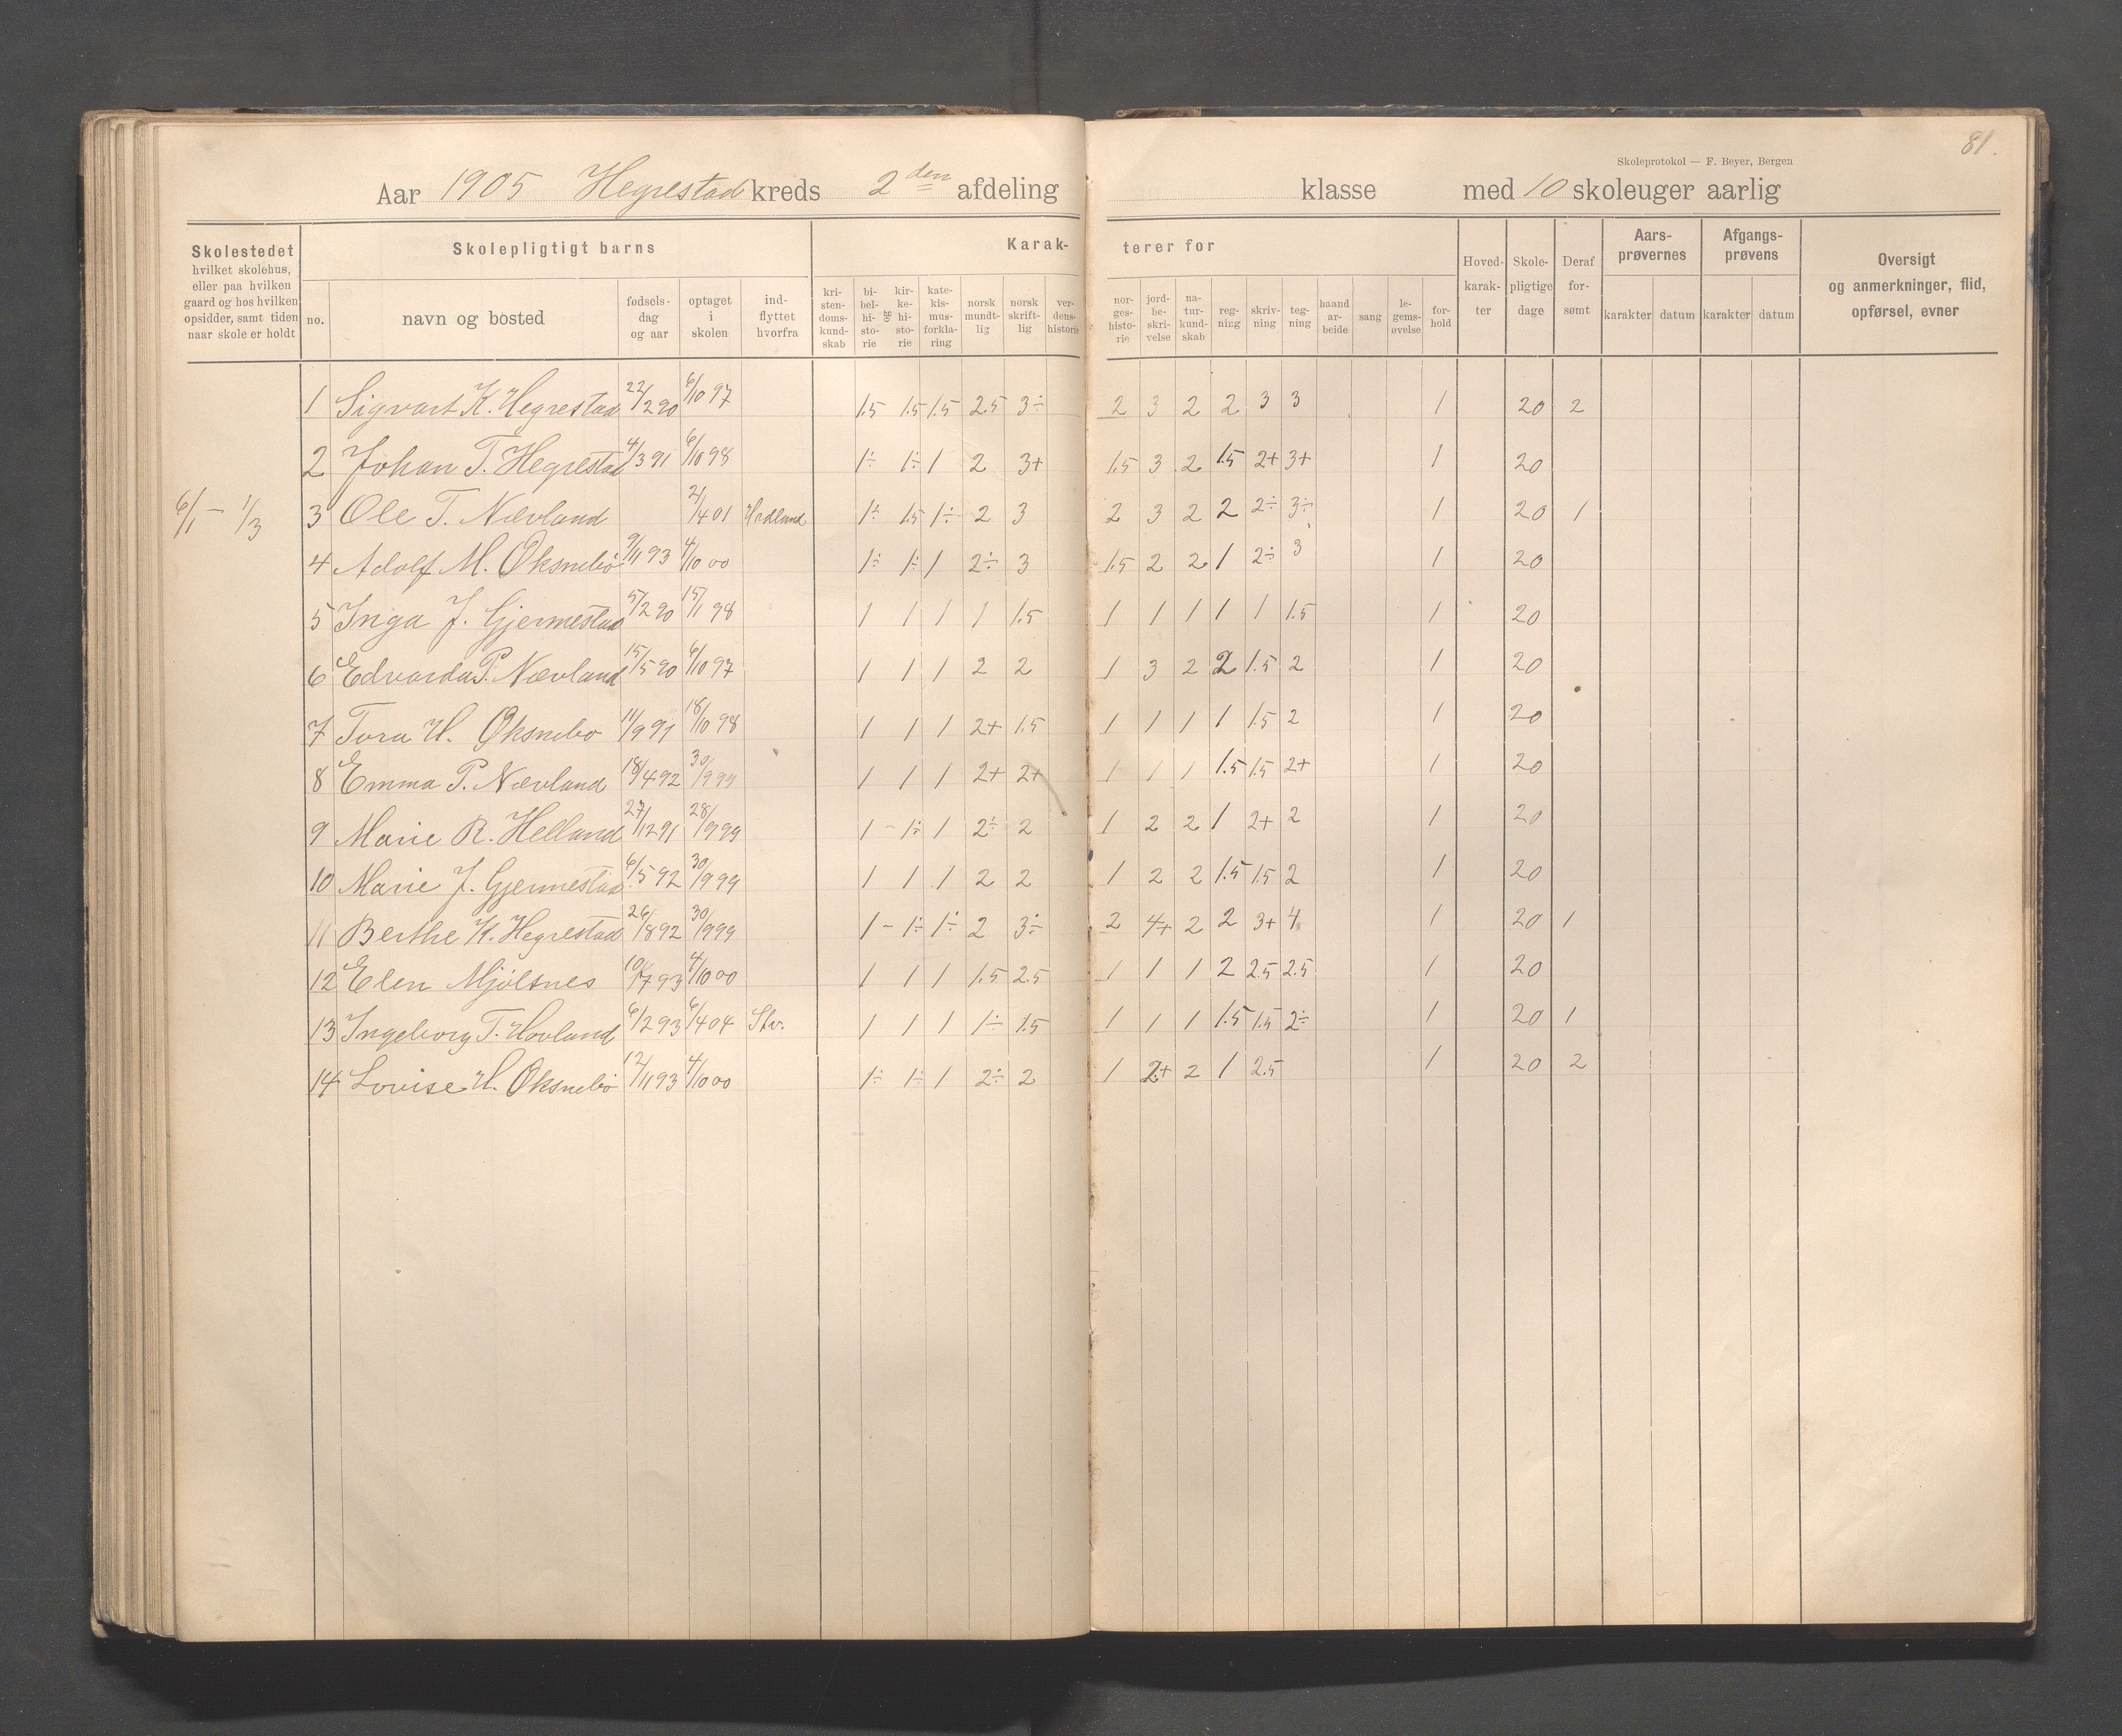 81.
Skoleprotokol — F. Beyer, Bergen
Aar 1905 Hegrestad kreds 2den afdeling klasse med 10 skoleuger aarlig
Skolestedet hvilket skolehus, eller paa hvilken gaard og hos hvilken opsidder, samt tiden naar skole er holdt
Skolepligtigt barns
Karakterer for
no. navn og bosted fødselsdag og aar optaget i skolen indflyttet hvorfra
kristendomskundskab bibelhistorie og kirkehistorie katekismusforklaring norsk mundtlig norsk skriftlig verdenshistorie norgeshistorie jordbeskrivelse naturkundskab regning skrivning tegning haandarbeide sang legemsøvelse forhold
Hovedkarakter Skolepligtige dage Deraf forsømt
Aarsprøvernes karakter datum
Afgangsprøvens karakter datum
Oversigt og anmerkninger, flid, opførsel, evner
1 Sigvart K. Hegrestad 22/2 90 6/10 97 1.5 1.5 1.5 2.5 3÷ 2 3 2 2 3 3 1 20 2
2 Johan T. Hegrestad 4/3 91 6/10 98 1÷ 1÷ 1 2 3+ 1.5 3 2 1.5 2+ 3+ 1 20
6/1 — 1/3 3 Ole T. Nævland 2/4 01 1÷ 1.5 1÷ 2 3 2 3 2 2 2÷ 3÷ 1 20 1
4 Adolf M. Øksnebø 9/11 93 4/10 00 1÷ 1÷ 1 2÷ 3 1.5 2 2 1 2÷ 3 1 20
5 Inga J. Gjermestad 5/2 90 15/1 98 1 1 1 1 1.5 1 1 1 1 1 1.5 1 20
6 Edvarda P. Nævland 15/5 90 6/10 97 1 1 1 2 2 1 3 2 2 1.5 2 1 20
7 Tora H. Øksnebø 11/9 91 18/10 98 1 1 1 2+ 1.5 1 1 1 1 1.5 2 1 20
8 Emma P. Nævland 18/4 92 30/9 99 1 1 1 2+ 2+ 1 1 1 1.5 1.5 2+ 1 20
9 Marie R. Helland 27/12 91 28/9 99 1 - 1÷ 1 2÷ 2 1 2 2 1 2+ 2 1 20
10 Marie J. Gjermestad 6/5 92 30/9 99 1 1 1 2 2 1 2 2 1.5 1.5 2 1 20
11 Berthe K. Hegrestad 26/8 92 30/9 99 1 - 1÷ 1÷ 2 3÷ 2 4+ 2 2 3+ 4 1 20 1
12 Elen Mjölsnes 10/7 93 4/10 00 1 1 1 1.5 2.5 1 1 1 2 2.5 2.5 1 20
13 Ingeborg T. Hovland 6/2 93 6/4 04 Stv. 1 1 1 1÷ 1.5 1 1 1 1.5 1.5 2÷ 1 20 1
14 Lovise H. Øksnebø 12/11 93 4/10 00 1÷ 1÷ 1 2÷ 2 1 2+ 2 1 2.5 1 20 2